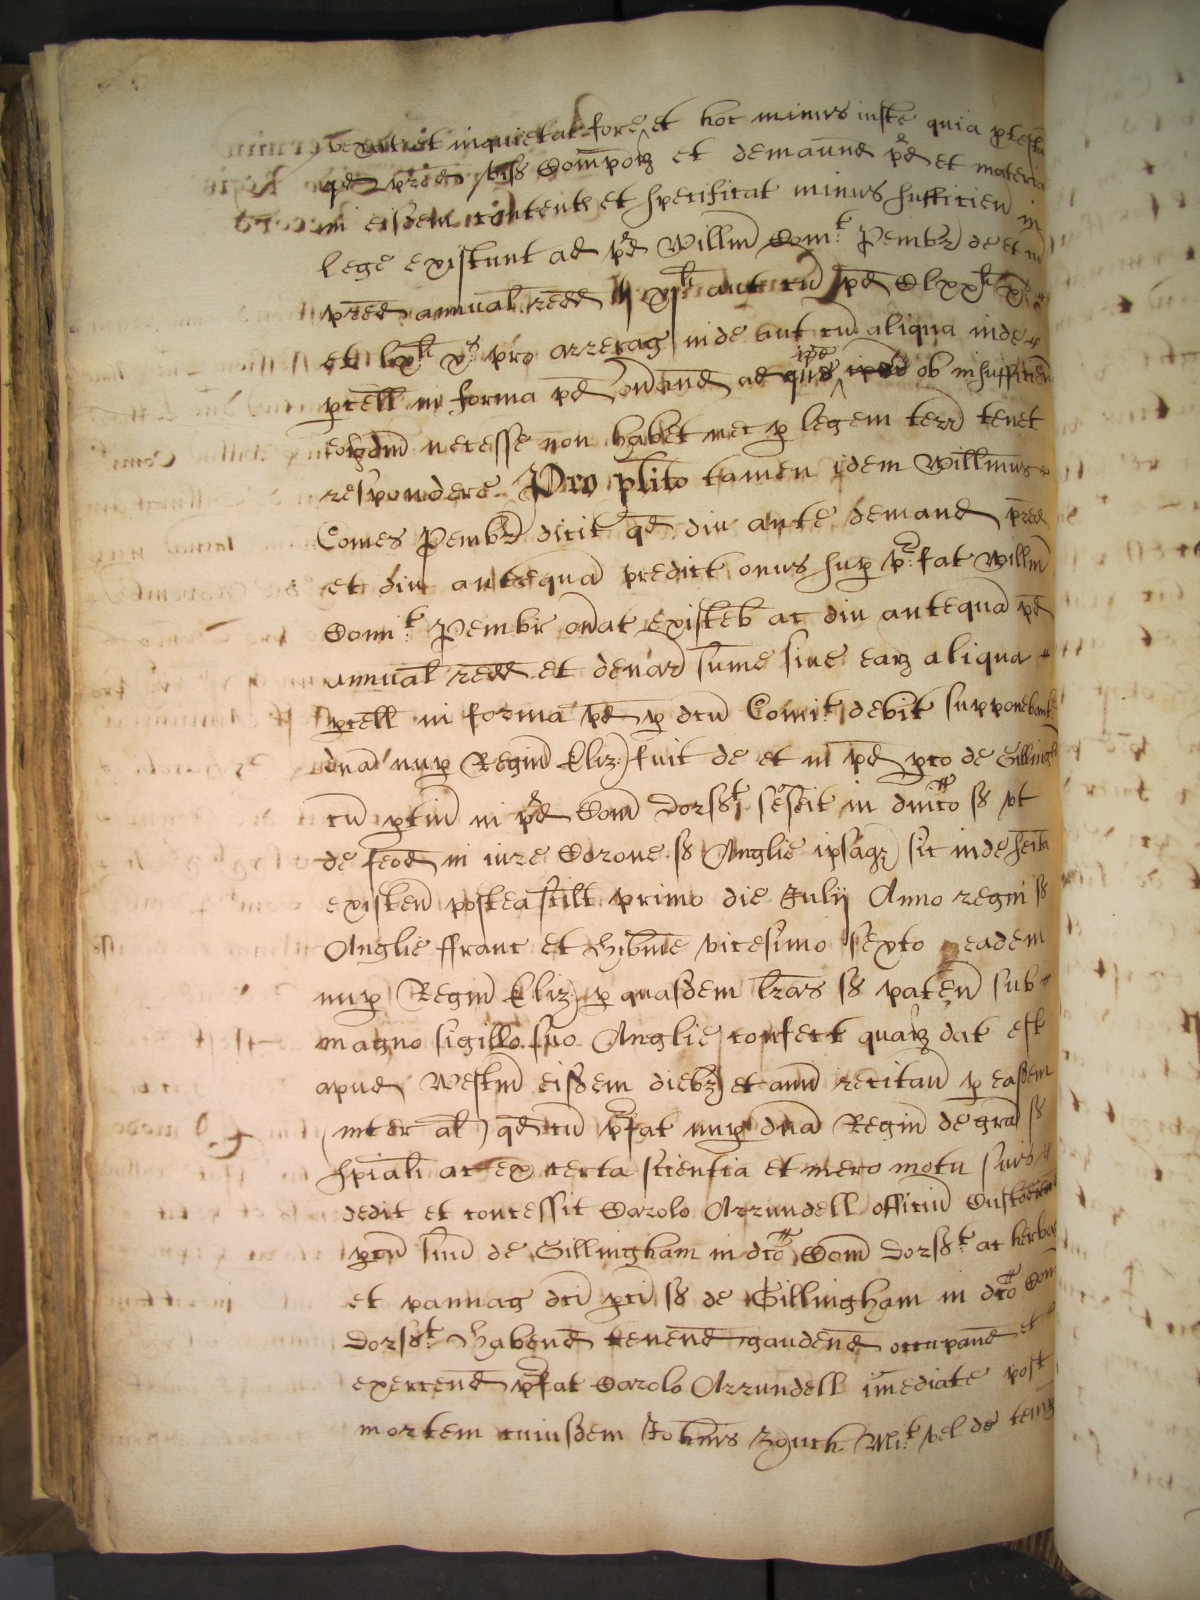 vexat et inquietat fore et hoc minus iuste quia protest
qd pred Compoz et demaund pd et materia
in eisdem content et specificat minus sufficien in
lege existunt ad pd Willm Comt Pembr de et in
pred annual redd xli aut cu pd Clxxli
et lxli xs pro arrerag inde aut cu aliqua inde
pcell in forma pd onand ad que ipse ob insufficien
eozdm necesse non habet nec p legem terr tenet
respondere Pro plito tamen idem Willmus
Comes Pembr dicit qd diu ante demand pred
et diu antequa predict onus sup pfat Willm
Comit Pembr onat existeb ac diu antequa pd
annual redd et denar sume siue eaz aliqua
pcell in forma pd p dcu Comit debit supponebant
dna nup Regin Eliz fuit de et in pd pco de Gillingh
cu ptin in pd Com Dorst seseit in dnico s vt
de feod in iure Corone s Anglie ipsaqz sic inde seita
existen postea scilt primo die Julij Anno regni s
Anglie ffranc et Hibnie vicesimo sexto eadem
nup Regin Eliz p quasdem lras s paten sub
magno sigillo suo Anglie confect quaz dat est
apud Westm eisdem diebz et ann recitan p easdem
inter al qd cu pfat nup dna Regin de gra s
spiali ac ex certa scientia et mero motu suis
dedit et concessit Carolo Arrundell officiu Custod
pcu suu de Gillingham in dco Com Dorst ac herbag
et pannag dci pci s de Gillingham in dco Com
Dorst Habend tenend gaudend occupand et
exercend pfat Carolo Arrundell imediate post
mortem cuiusdem Johnis Zouch Mit vel de temp